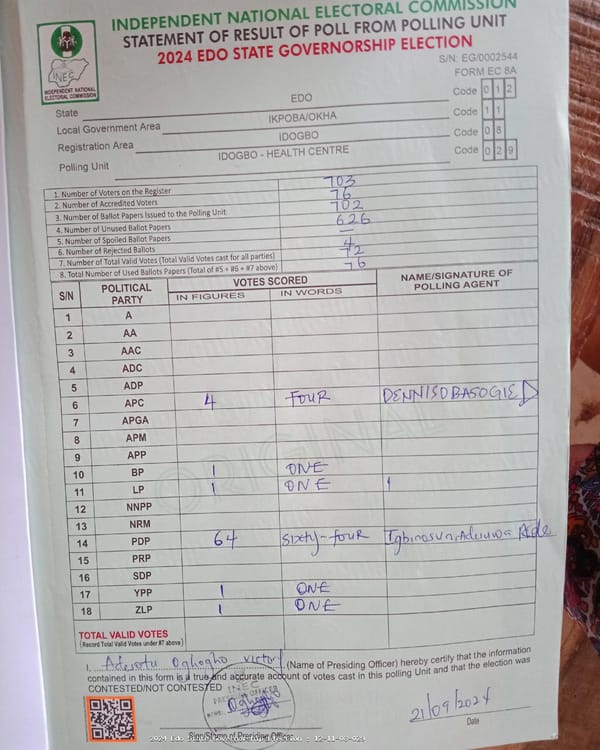 INDEPENDENT NATIONAL ELECTORAL COMMISSION
STATEMENT OF RESULT OF POLL FROM POLLING UNIT
2024 EDO STATE GOVERNORSHIP ELECTION
INEC
INDEPENDENT NATIONAL ELECTORAL COMMISSION
S/N: EG/0002544
FORM EC 8A
State EDO Code 0 1 2
Local Government Area IKPOBA/OKHA Code 1 1
Registration Area IDOGBO Code 0 8
Polling Unit IDOGBO - HEALTH CENTRE Code 0 2 9
1. Number of Voters on the Register 703
2. Number of Accredited Voters 76
3. Number of Ballot Papers Issued to the Polling Unit 702
4. Number of Unused Ballot Papers 626
5. Number of Spoiled Ballot Papers —
6. Number of Rejected Ballots 4
7. Number of Total Valid Votes (Total Valid Votes cast for all parties) 72
8. Total Number of Used Ballots Papers (Total of #5 + #6 + #7 above) 76
S/N POLITICAL PARTY VOTES SCORED NAME/SIGNATURE OF POLLING AGENT
IN FIGURES IN WORDS
1 A
2 AA
3 AAC
4 ADC
5 ADP
6 APC 4 FOUR DENNIS OBASOGIE
7 APGA
8 APM
9 APP
10 BP 1 ONE
11 LP 1 ONE
12 NNPP
13 NRM
14 PDP 64 SIXTY-FOUR
15 PRP
16 SDP
17 YPP 1 ONE
18 ZLP 1 ONE
ORIGINAL
TOTAL VALID VOTES
(Record Total Valid Votes under #7 above)
I, Oghogho victory (Name of Presiding Officer) hereby certify that the information
contained in this form is a true and accurate account of votes cast in this polling Unit and that the election was
CONTESTED/NOT CONTESTED
INEC
PRESIDING OFFICER
21/09/2024
Sign/Stamp of Presiding Officer
Date